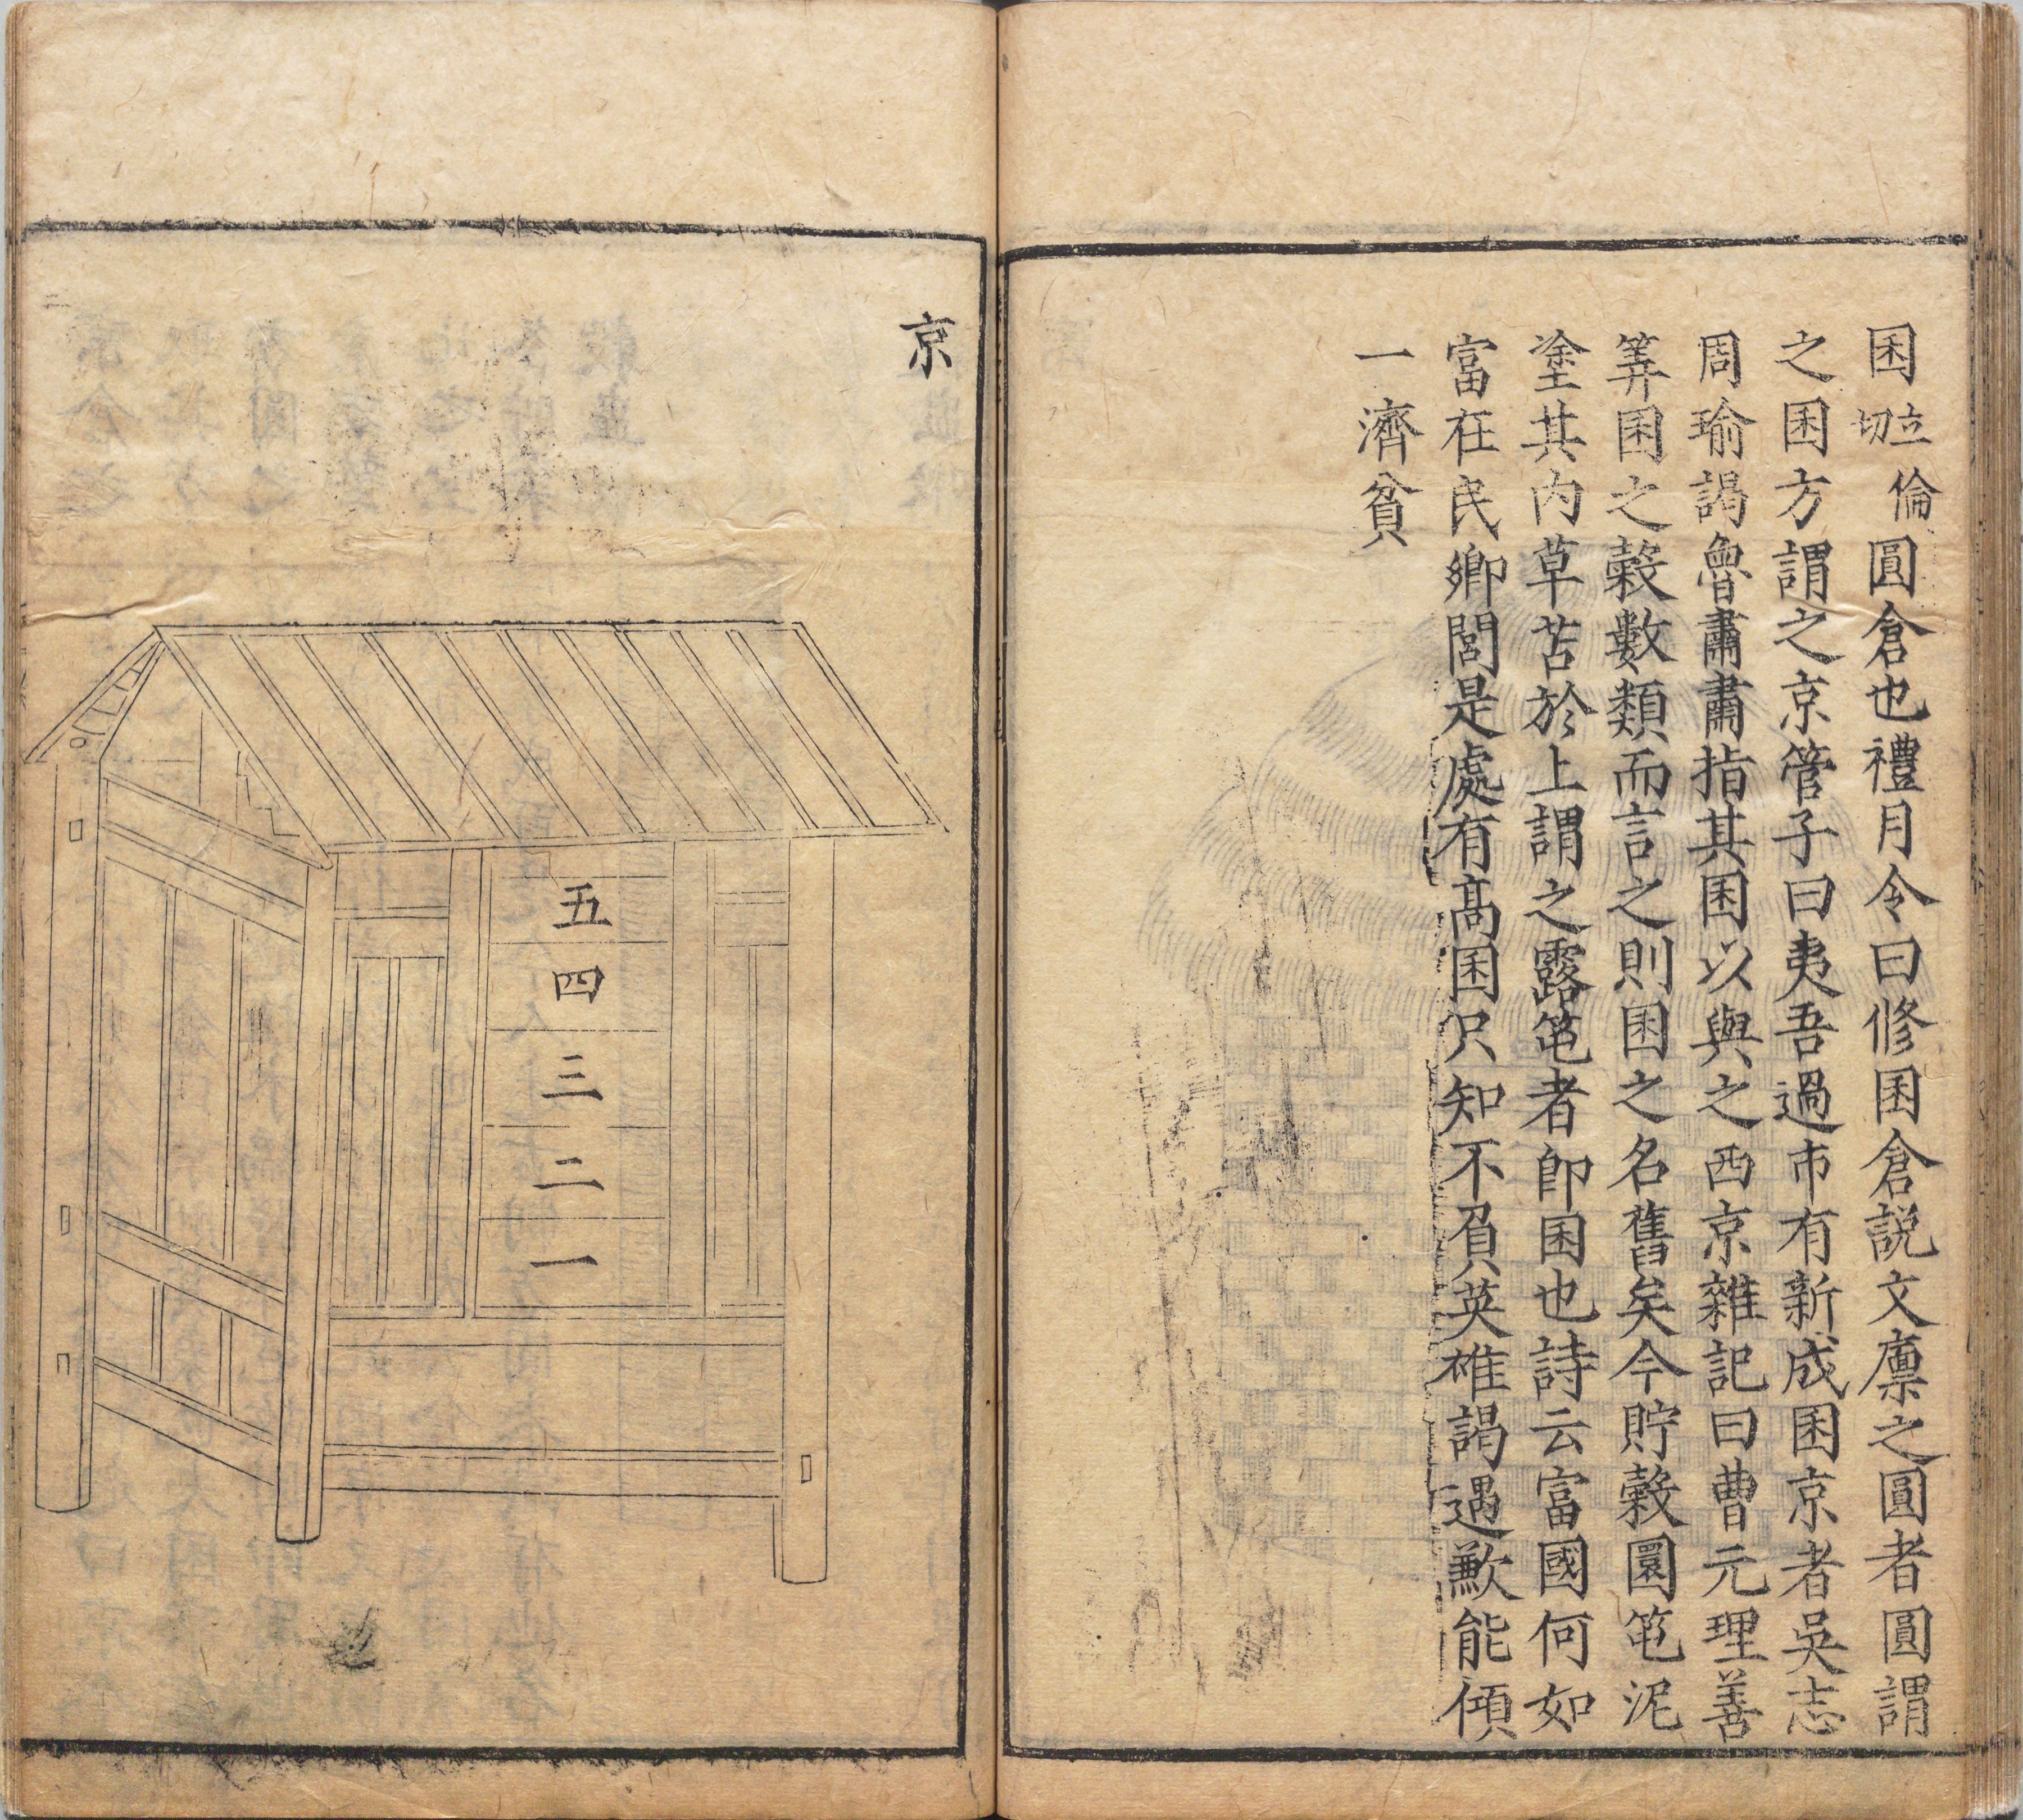 囷立倫切圓倉也禮月令曰修囷倉說文廩之圓者圓謂
之囷方謂之京管子曰夷吾過市有新成囷京者吳志
周瑜謁魯肅肅指其囷以與之西京雜記曰曹元理善
筭囷之榖數類而言之則囷之名舊矣今貯榖圜笆泥
塗其内草苫於上謂之露笆者即囷也詩云富國何如
富在民鄉閭是處有髙囷只知不負英雄謁遇歉能傾
一濟貧
京
五四三二一